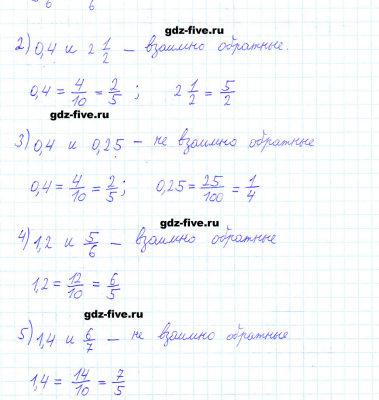 6 6
gdz-five.ru
2) 0,4 и 2 1/2 — взаимно обратные.
0,4 = 4/10 = 2/5 ; 2 1/2 = 5/2
gdz-five.ru
3) 0,4 и 0,25 — не взаимно обратные
0,4 = 4/10 = 2/5 ; 0,25 = 25/100 = 1/4
gdz-five.ru
4) 1,2 и 5/6 — взаимно обратные
1,2 = 12/10 = 6/5
gdz-five.ru
5) 1,4 и 6/7 — не взаимно обратные
1,4 = 14/10 = 7/5